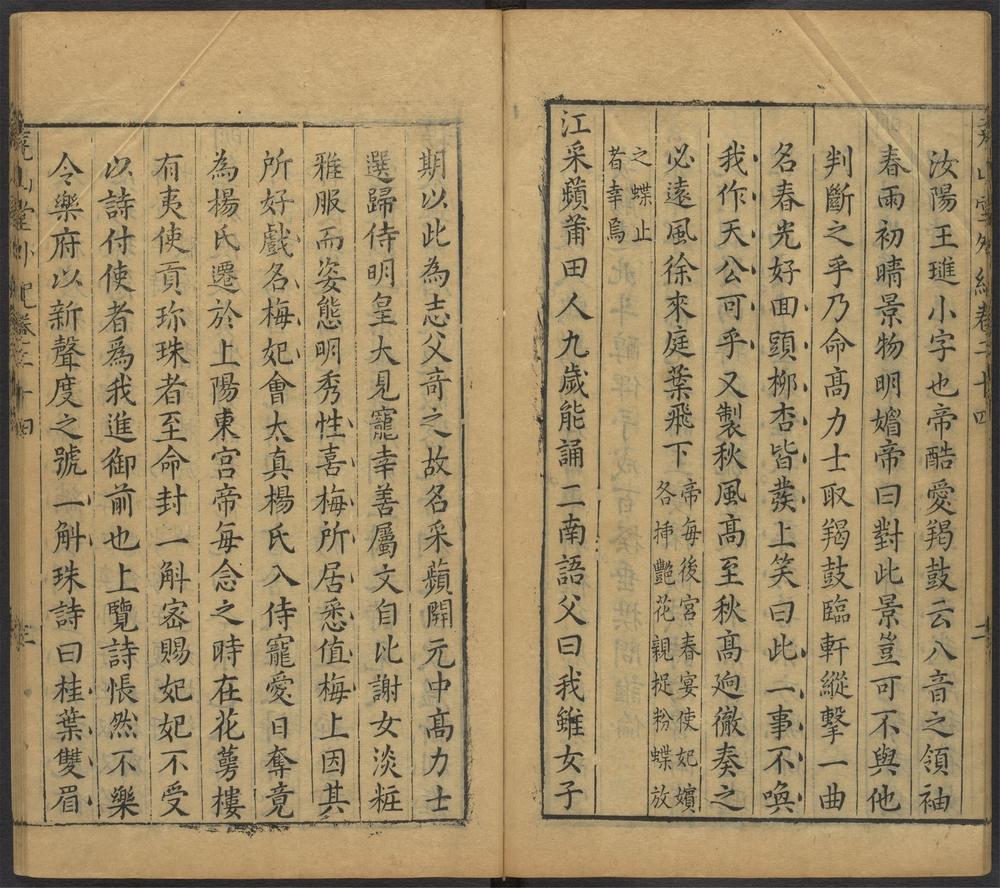 汝陽王璡小字也帝酷愛羯鼓云八音之領袖
春雨初晴景物明媚帝曰對此景豈可不與他
判斷之乎乃命髙力士取羯鼓臨軒縱擊一曲
名春光好回頭栁杏皆發上笑曰此一事不喚
我作天公可乎又製秋風髙至秋髙逈徹奏之
必遠風徐來庭葉飛下
帝每後宮春宴使妃嬪
各挿艷花親捉粉蝶放
之蝶止
者幸焉
江采蘋莆田人九歲能誦二南語父曰我雖女子
期以此為志父竒之故名采蘋開元中髙力士
選歸侍明皇大見寵幸善屬文自比謝女淡粧
雅服而姿態明秀性喜梅所居悉值梅上因其
所好戲名梅妃會太真楊氏入侍寵愛日奪竟
為楊氏遷於上陽東宮帝每念之時在花萼樓
有夷使貢珎珠者至命封一斛宻賜妃妃不受
以詩付使者爲我進御前也上覽詩悵然不樂
令樂府以新聲度之號一斛珠詩曰桂葉雙眉